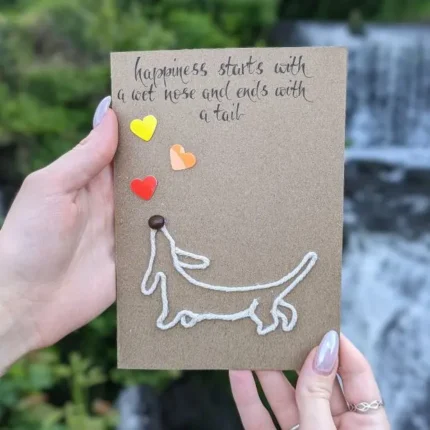 happiness starts with
a wet nose and ends with
a tail